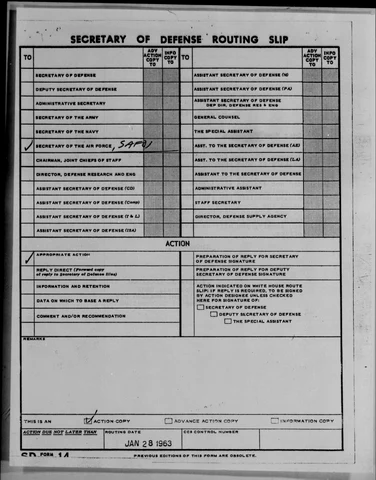 SECRETARY OF DEFENSE ROUTING SLIP
TO
ADV ACTION COPY TO
INFO COPY TO
TO
ADV ACTION COPY TO
INFO COPY TO
SECRETARY OF DEFENSE
DEPUTY SECRETARY OF DEFENSE
ADMINISTRATIVE SECRETARY
SECRETARY OF THE ARMY
SECRETARY OF THE NAVY
SECRETARY OF THE AIR FORCE,
CHAIRMAN, JOINT CHIEFS OF STAFF
DIRECTOR, DEFENSE RESEARCH AND ENG
ASSISTANT SECRETARY OF DEFENSE (CD)
ASSISTANT SECRETARY OF DEFENSE (Comp)
ASSISTANT SECRETARY OF DEFENSE (I & L)
ASSISTANT SECRETARY OF DEFENSE (ISA)
ASSISTANT SECRETARY OF DEFENSE (M)
ASSISTANT SECRETARY OF DEFENSE (PA)
ASSISTANT SECRETARY OF DEFENSE
DEP DIR, DEFENSE RES & ENG
GENERAL COUNSEL
THE SPECIAL ASSISTANT
ASST. TO THE SECRETARY OF DEFENSE (AE)
ASST. TO THE SECRETARY OF DEFENSE (LA)
ASSISTANT TO THE SECRETARY OF DEFENSE
ADMINISTRATIVE ASSISTANT
STAFF SECRETARY
DIRECTOR, DEFENSE SUPPLY AGENCY
ACTION
APPROPRIATE ACTION
REPLY DIRECT (Forward copy
of reply to Secretary of Defense files)
INFORMATION AND RETENTION
DATA ON WHICH TO BASE A REPLY
COMMENT AND/OR RECOMMENDATION
PREPARATION OF REPLY FOR SECRETARY
OF DEFENSE SIGNATURE
PREPARATION OF REPLY FOR DEPUTY
SECRETARY OF DEFENSE SIGNATURE
ACTION INDICATED ON WHITE HOUSE ROUTE
SLIP: IF REPLY IS REQUIRED, TO BE SIGNED
BY ACTION DESIGNEE UNLESS CHECKED
HERE FOR SIGNATURE OF:
SECRETARY OF DEFENSE
DEPUTY SECRETARY OF DEFENSE
THE SPECIAL ASSISTANT
REMARKS
THIS IS AN
ACTION COPY
ADVANCE ACTION COPY
INFORMATION COPY
ACTION DUE NOT LATER THAN
ROUTING DATE
CONTROL NUMBER
JAN 28 1963
SD FORM 14
PREVIOUS EDITIONS OF THIS FORM ARE OBSOLETE.